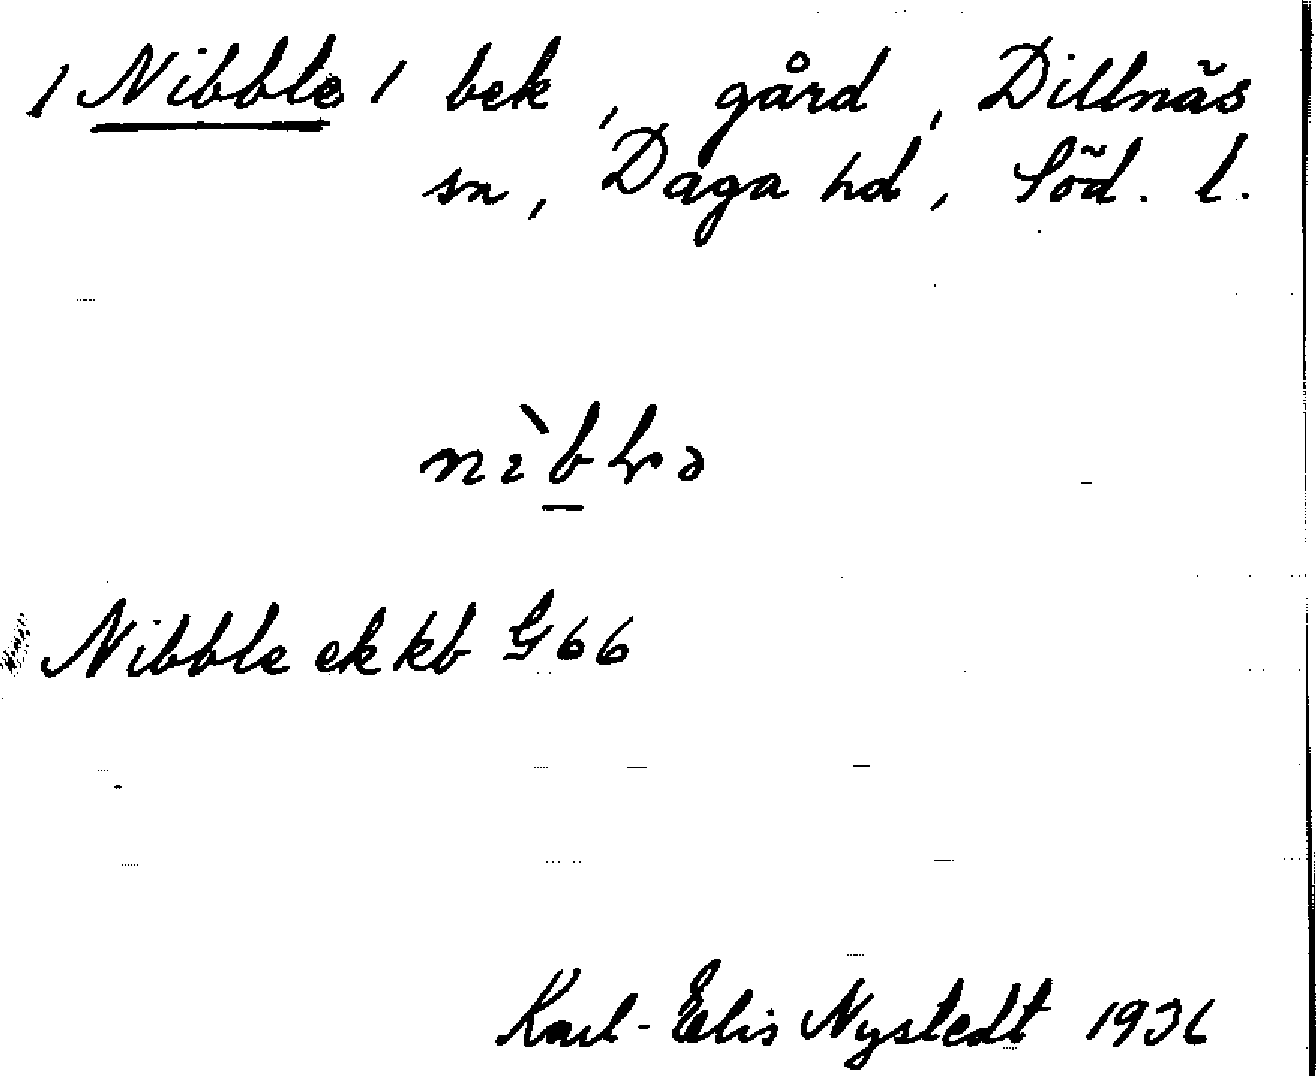 / Nibble / bek, gård, Dillnäs
sn, Daga hd, Söd. l.
Nibble ek kb G 66
Karl-Elis Nystedt 1936